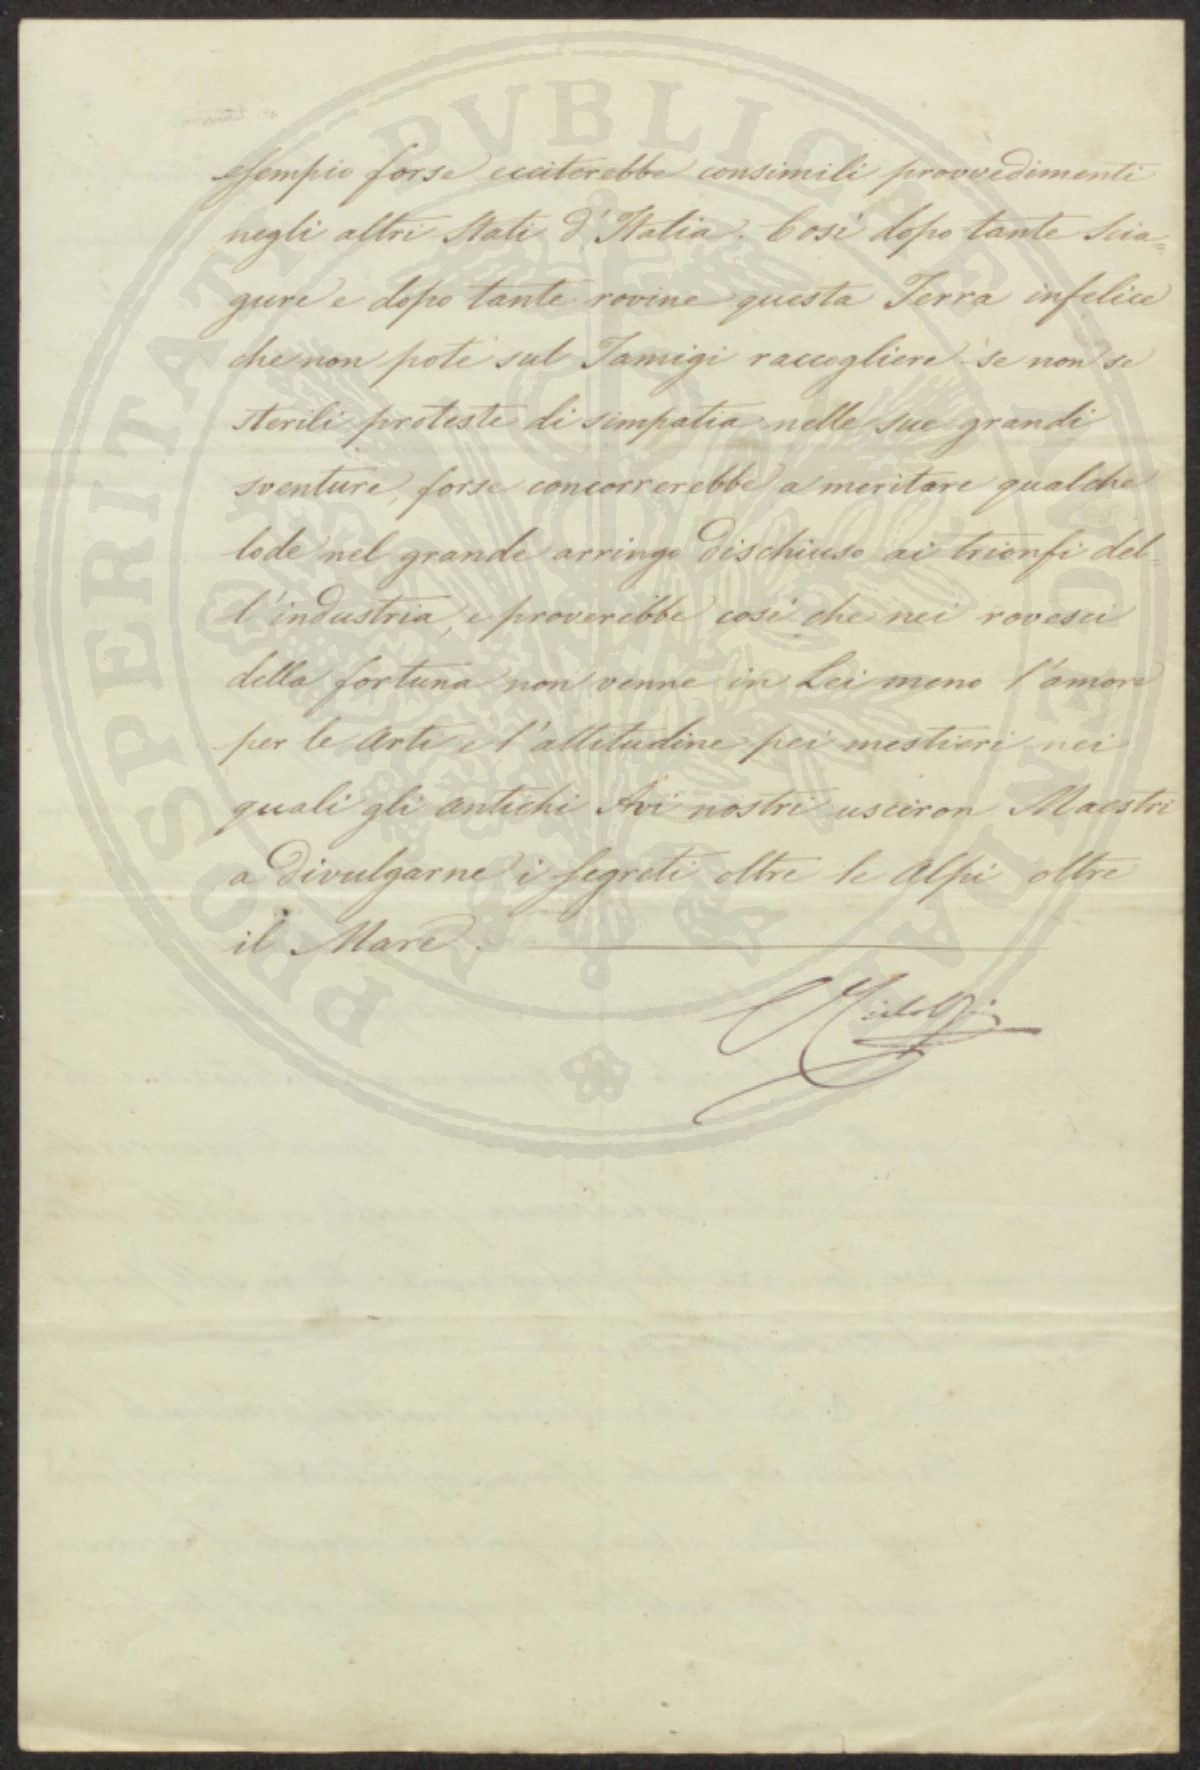 esempio forse ecciterebbe consimili provvedimenti
negli altri Stati d'Italia. Così dopo tante Scia=
gure e dopo tante rovine questa Terra infelice
che non potè sul Tamigi raccogliere se non se
sterili proteste di simpatia nelle sue grandi
sventure, forse concorrerebbe a meritare qualche
lode nel grande arringo dischiuso ai trionfi del=
l'industria, e proverebbe così che nei rovesci
della fortuna non venne in Lei meno l'amore
per le Arti e l'attitudine pei mestieri nei
quali gli antichi Avi nostri usciron Maestri
a divulgarne i segreti oltre le Alpi oltre
il Mare.
PROSPERITATI PVBLICAE AVGENDAE